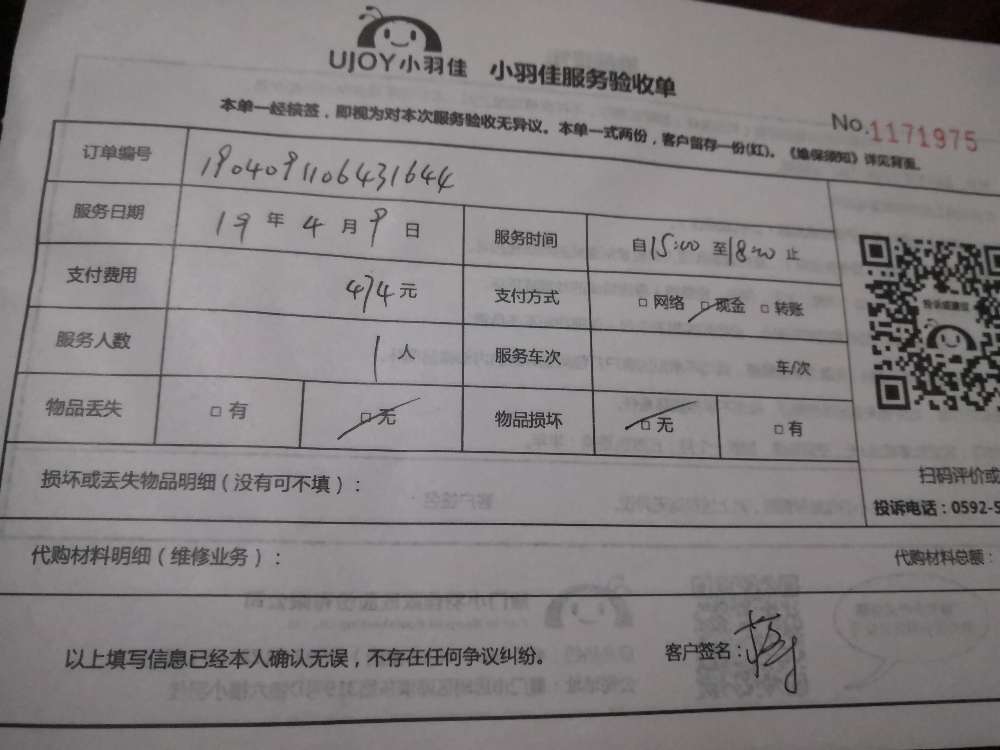 UJOY小羽佳 小羽佳服务验收单
No.1171975
本单一经核签，即视为对本次服务验收无异议。本单一式两份，客户留存一份(红)。《维保须知》详见背面。
订单编号 1904091106431644
服务日期 19 年 4 月 9 日 服务时间 自15:00 至18:00 止
支付费用 474元 支付方式 □网络 □现金 □转账
服务人数 1人 服务车次 车/次
物品丢失 □有 □无 物品损坏 □无 □有
损坏或丢失物品明细（没有可不填）：
扫码评价或
投诉电话：0592-5
代购材料明细（维修业务）： 代购材料总额：
以上填写信息已经本人确认无误，不存在任何争议纠纷。 客户签名：